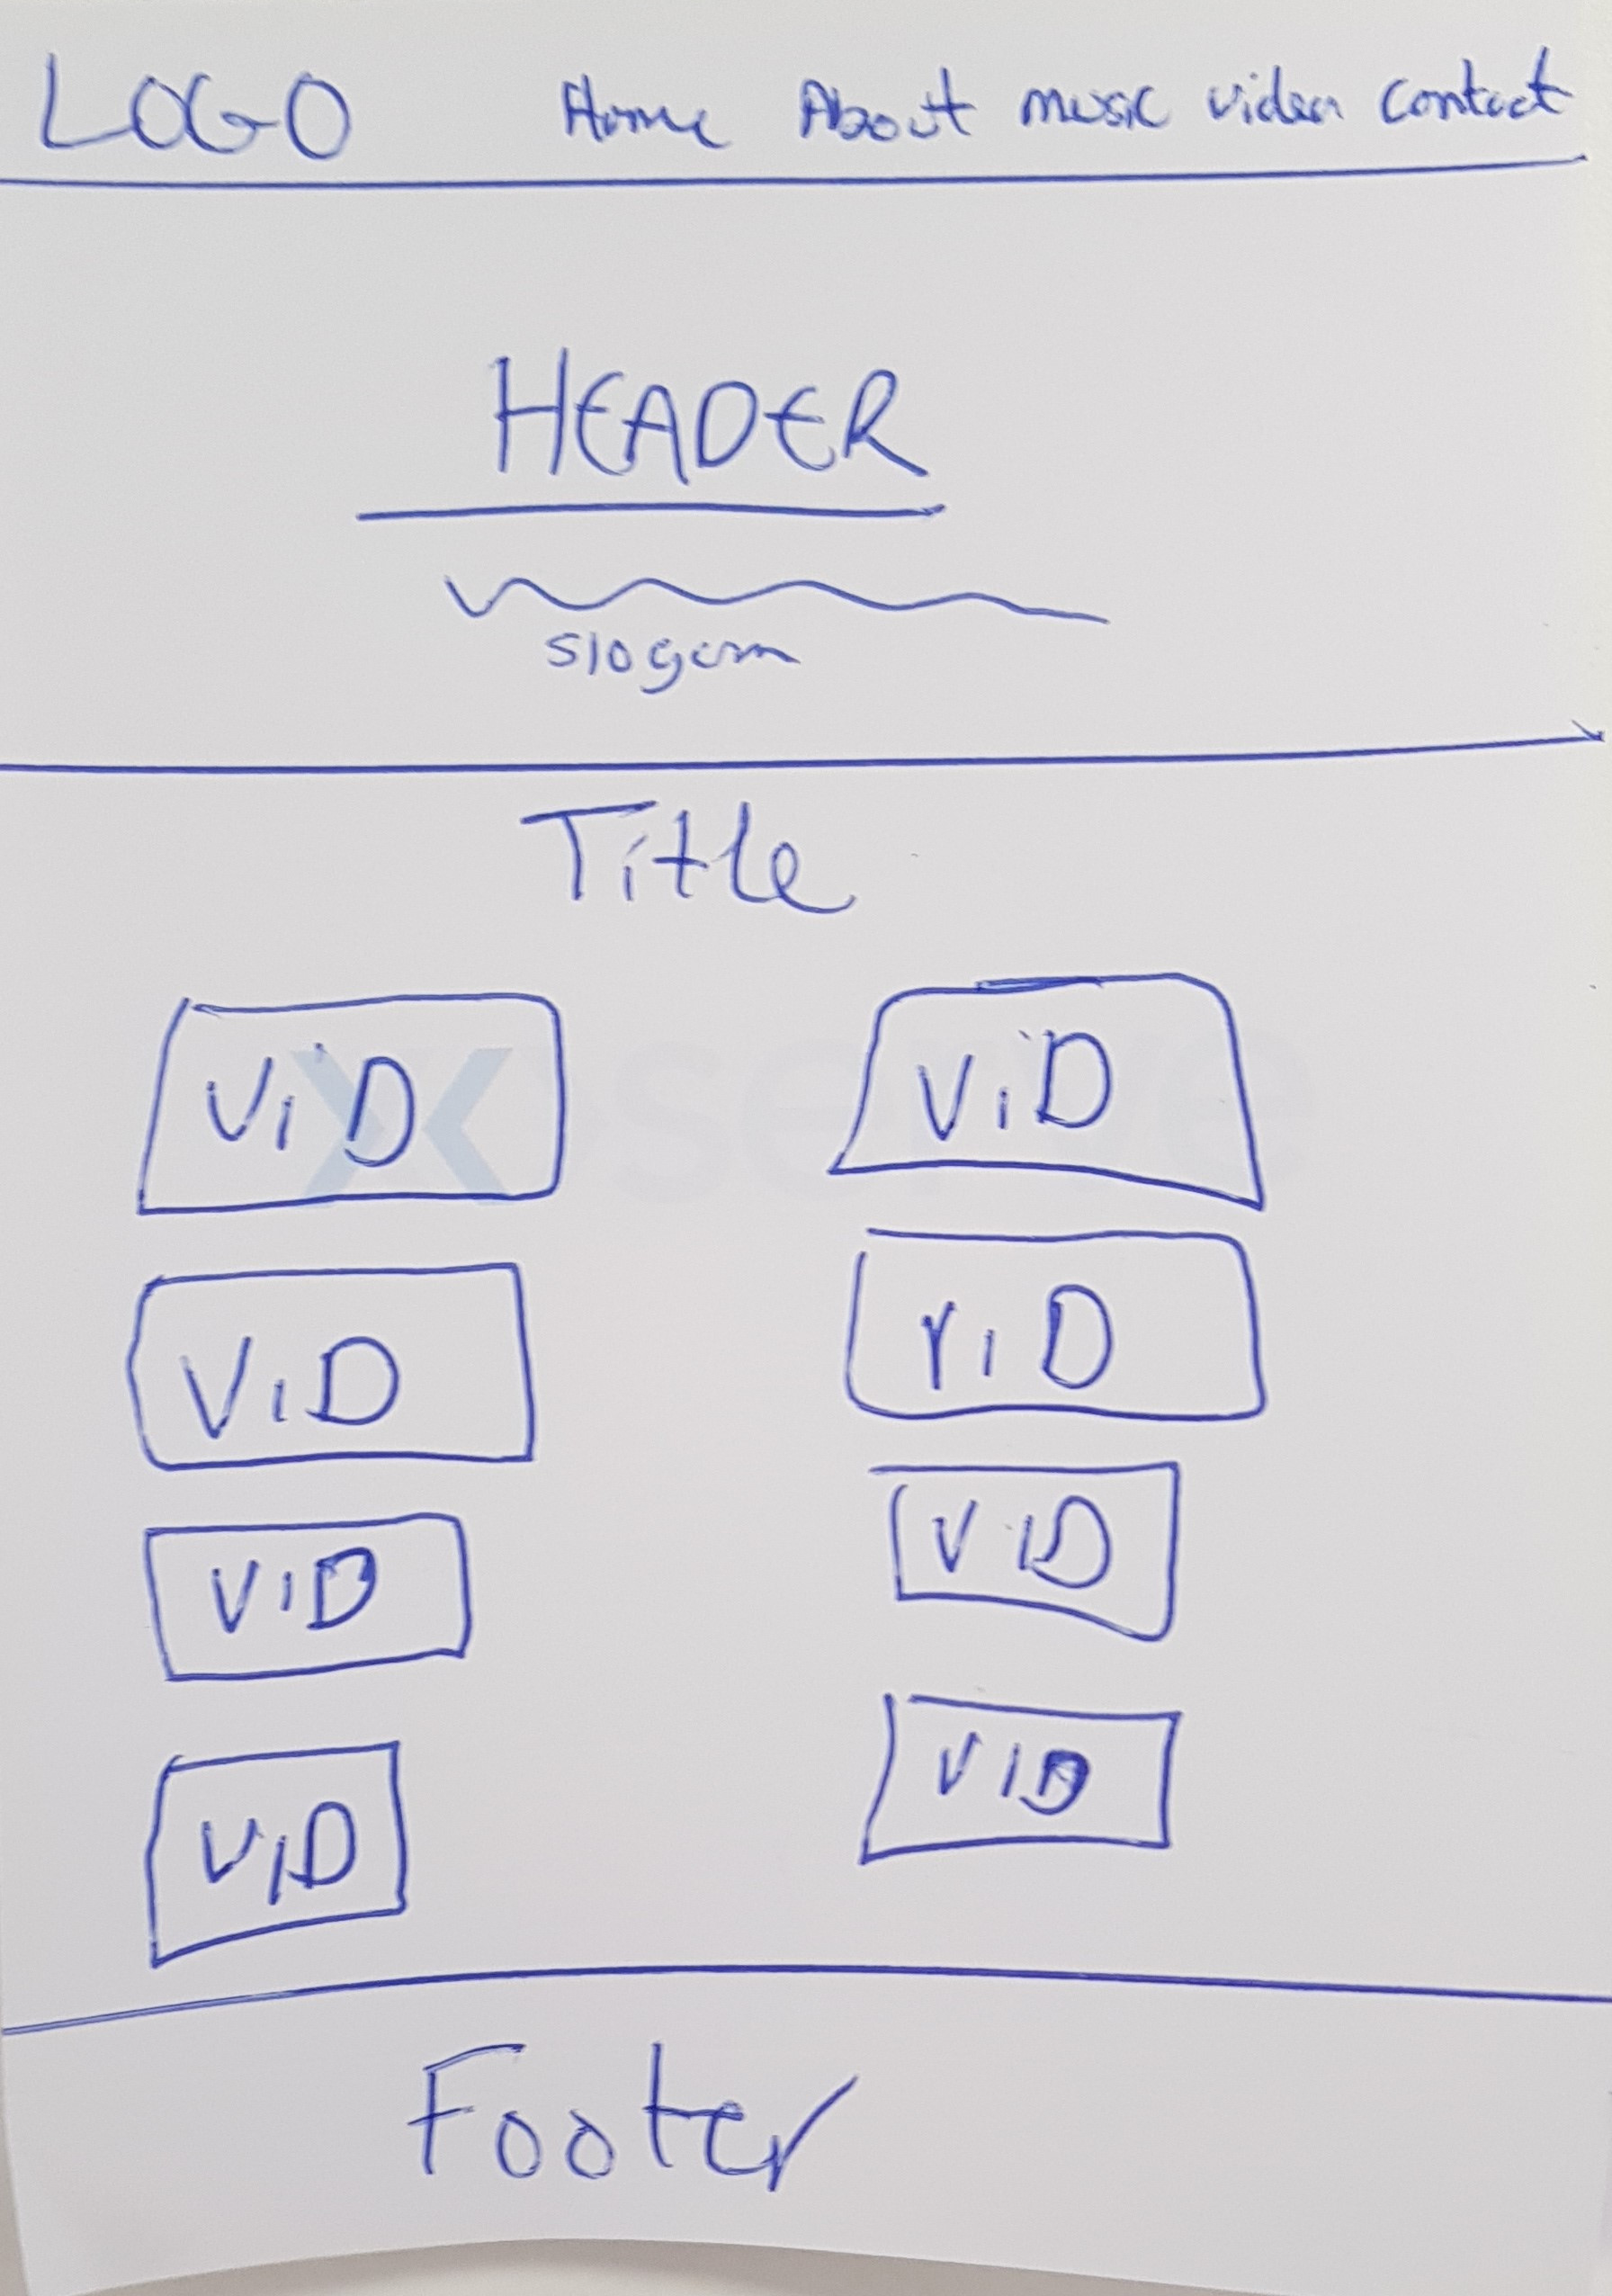 LOGO Home About music video contact
HEADER
slogan
Title
ViD ViD
ViD ViD
ViD ViD
ViD ViD
Footer